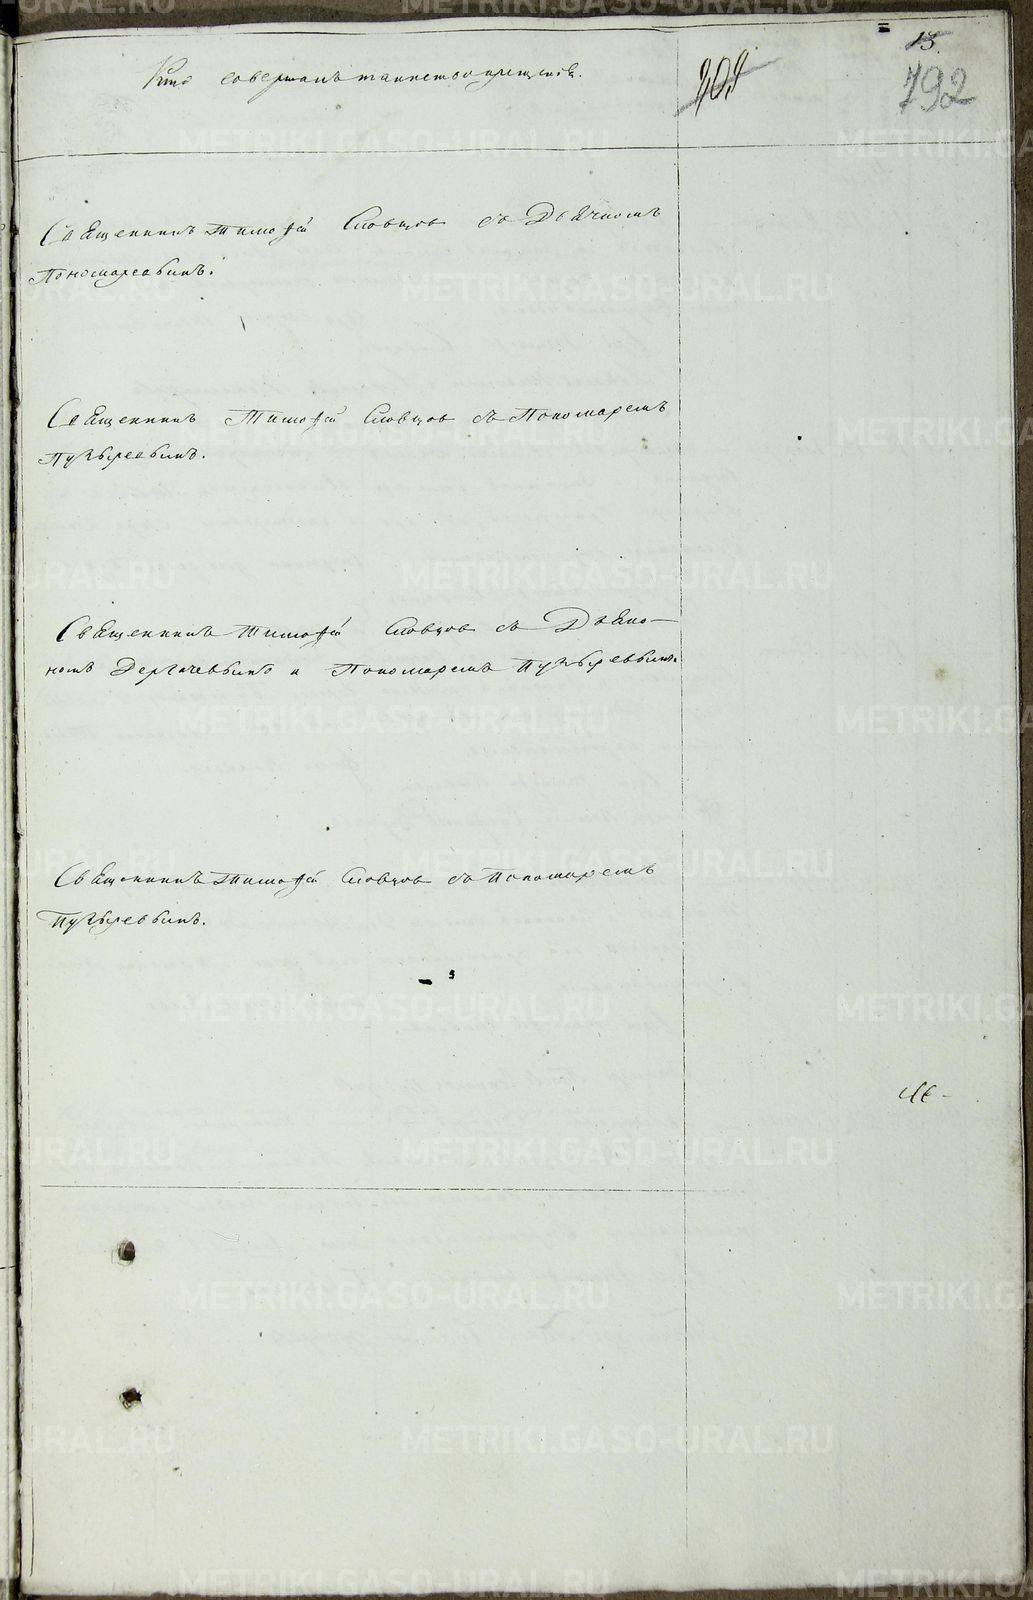 15.
Кто совершалъ таинство крещенія.
203
792
Священникъ Тимоѳей Словцов съ Дьячкомъ
Пономаревымъ.
Священникъ Тимоѳей Словцов съ Пономаремъ
Пузыревымъ.
Священникъ Тимоѳей Словцов съ Дьяко-
номъ Дергачевымъ и Пономаремъ Пузыревымъ.
Священникъ Тимоѳей Словцов съ Пономаремъ
Пузыревымъ.
METRIKI.GASO-URAL.RU